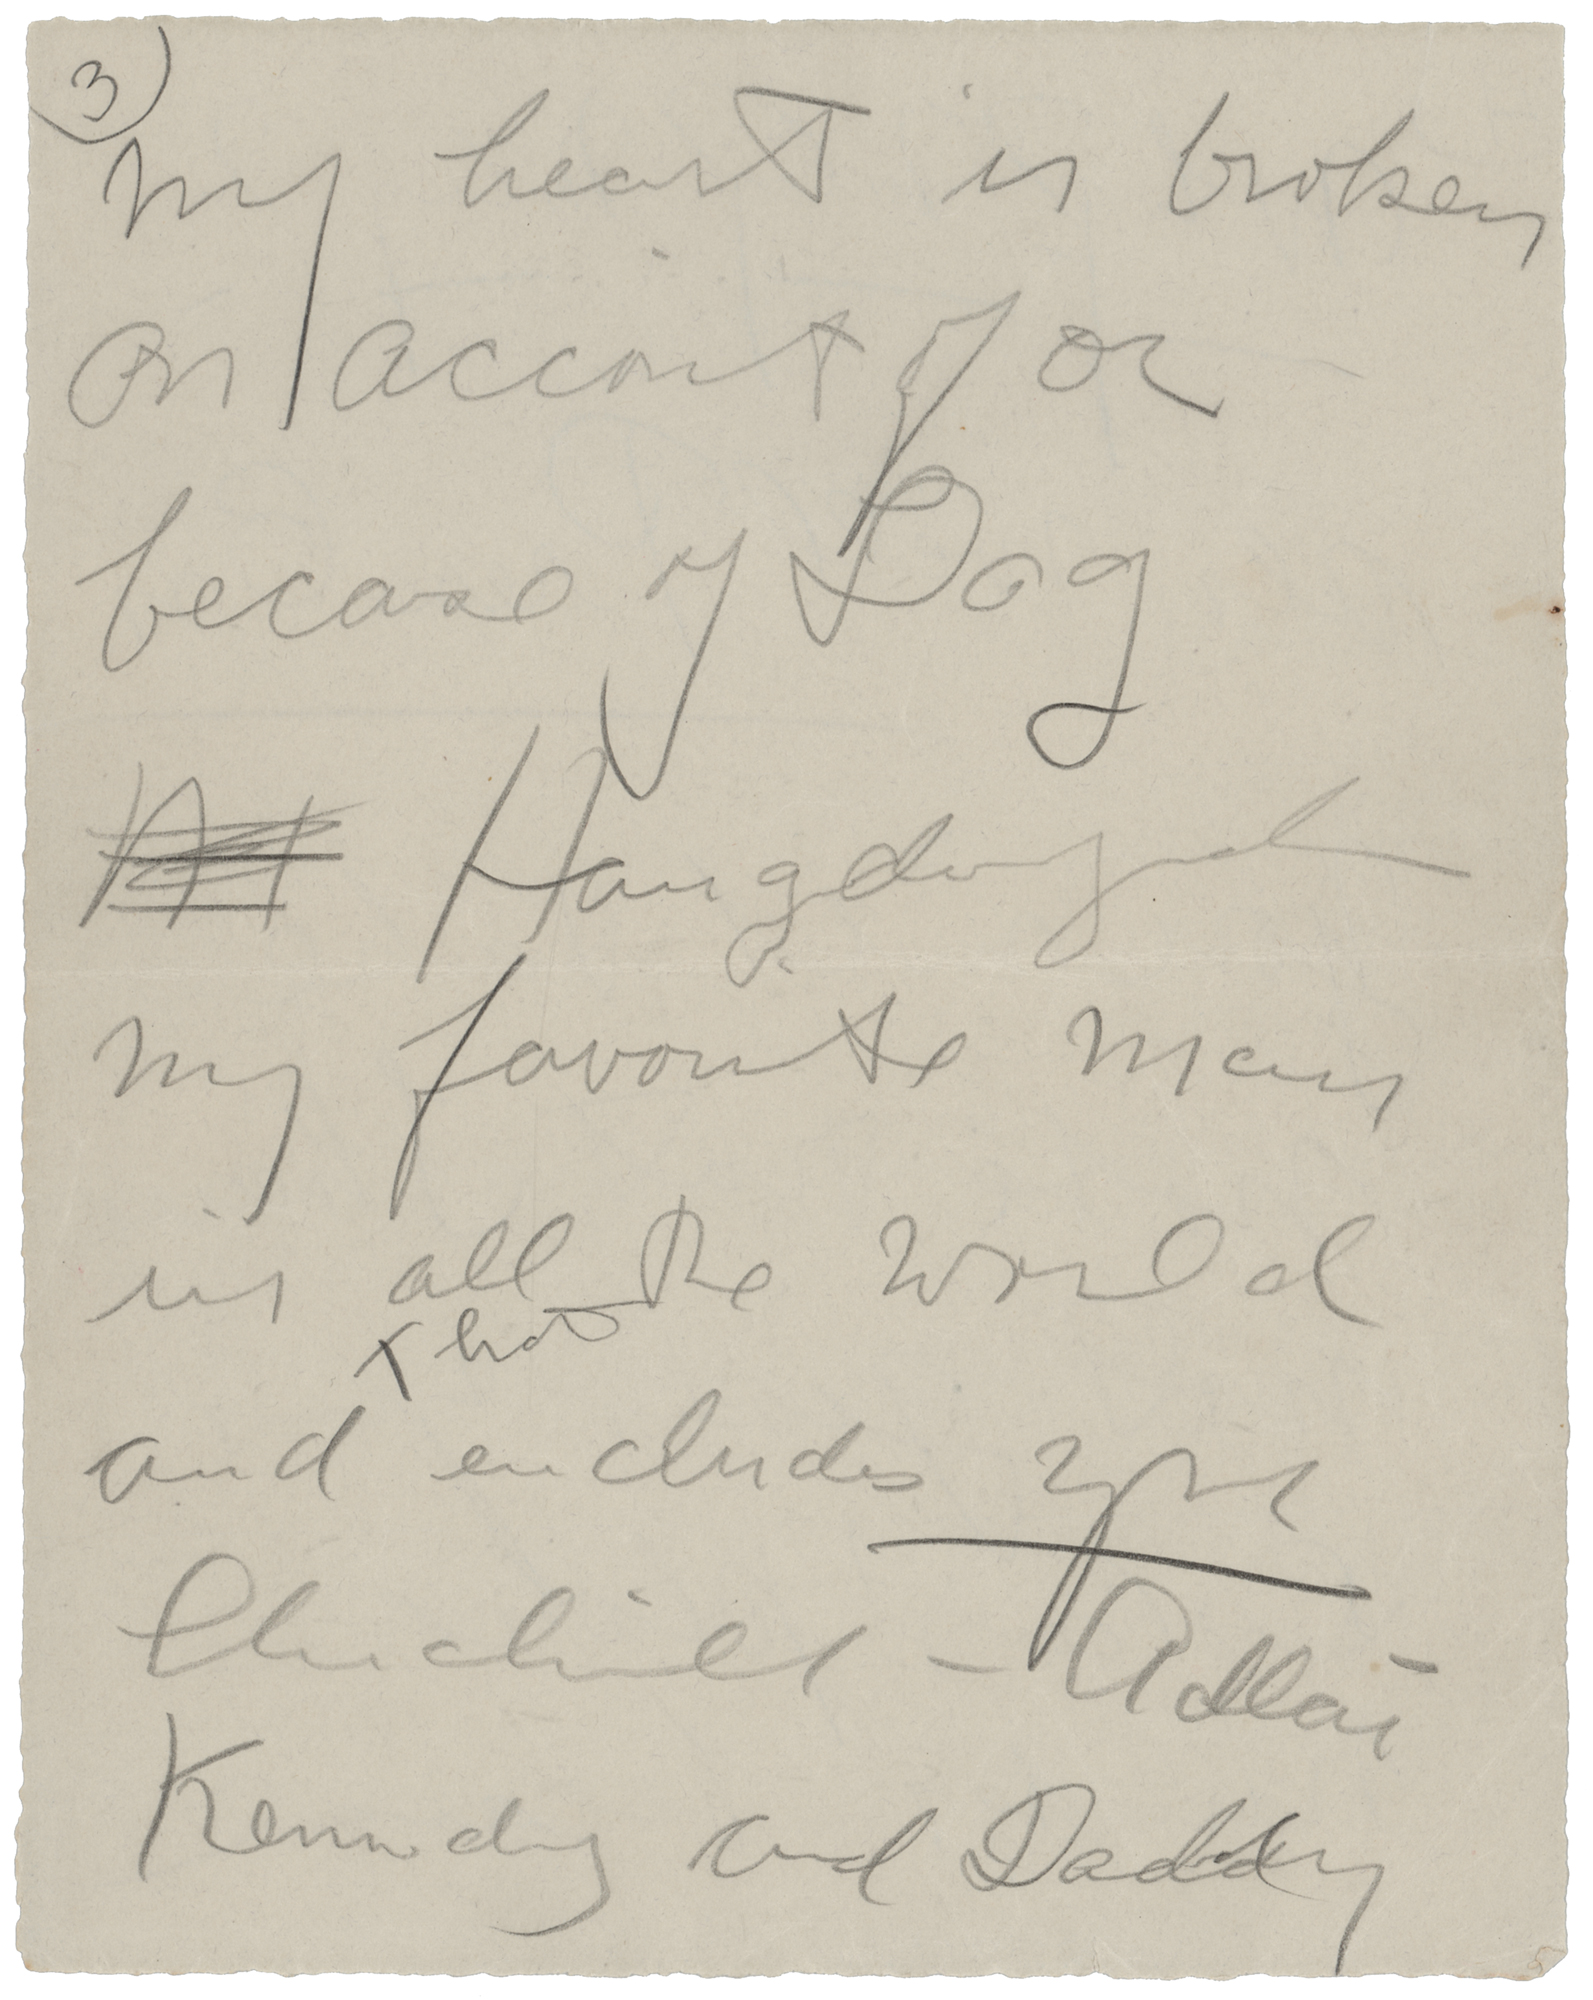 3)
My heart is broken
on account of or
because of Dag
Hammarskjold
my favorite man
in all the world
x that
and includes you
Churchill - Adlai
Kennedy and Daddy